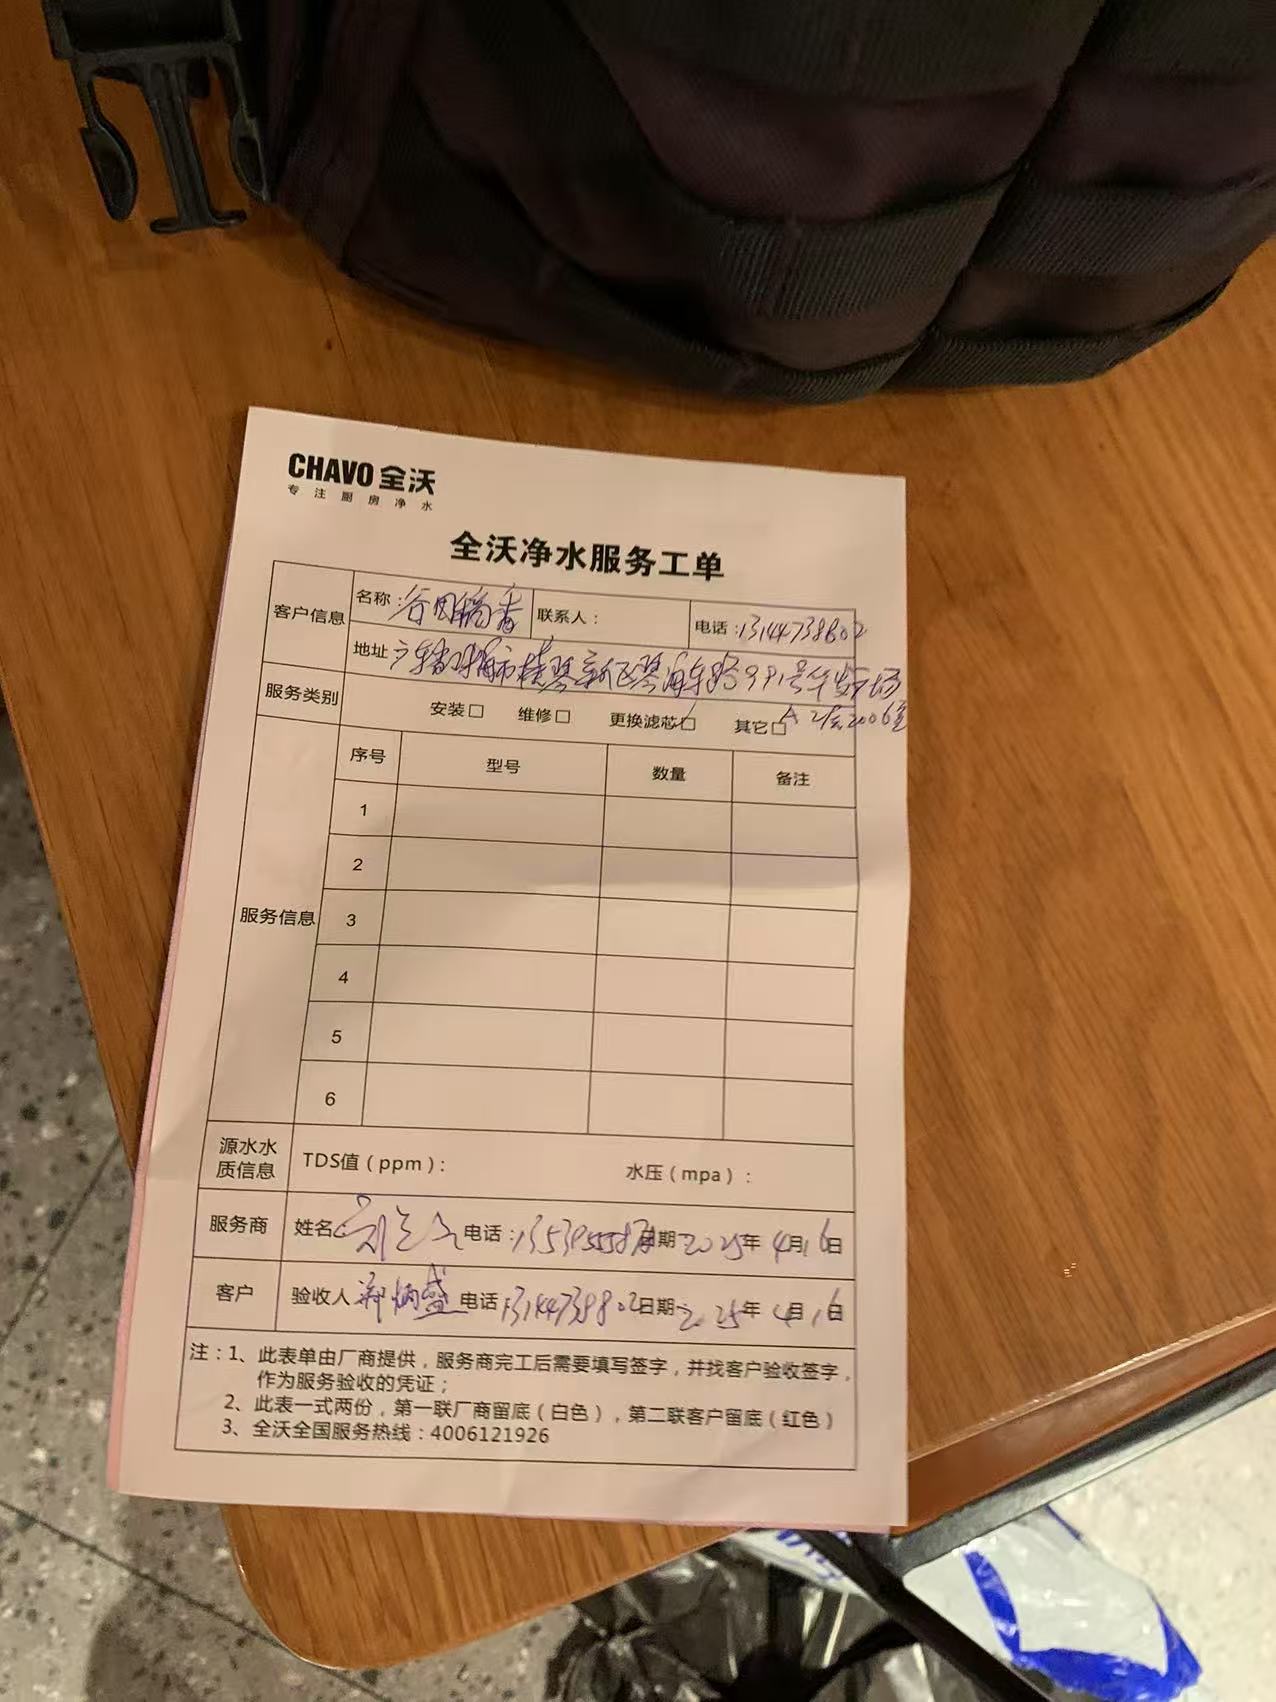 CHAVO 全沃
专注厨房净水
全沃净水服务工单
客户信息 名称：谷田稻香 联系人： 电话：13144738802
地址 广东省珠海市横琴新区琴海东路991号华发广场
A 2层2006室
服务类别 安装□ 维修□ 更换滤芯□ 其它□
服务信息 序号 型号 数量 备注
1
2
3
4
5
6
源水水质信息 TDS值（ppm）： 水压（mpa）：
服务商 姓名 电话： 日期 2025年 4月16日
客户 验收人 郑炳盛 电话 13144738802 日期 2025年 4月16日
注：1、此表单由厂商提供，服务商完工后需要填写签字，并找客户验收签字，
作为服务验收的凭证；
2、此表一式两份，第一联厂商留底（白色），第二联客户留底（红色）
3、全沃全国服务热线：4006121926